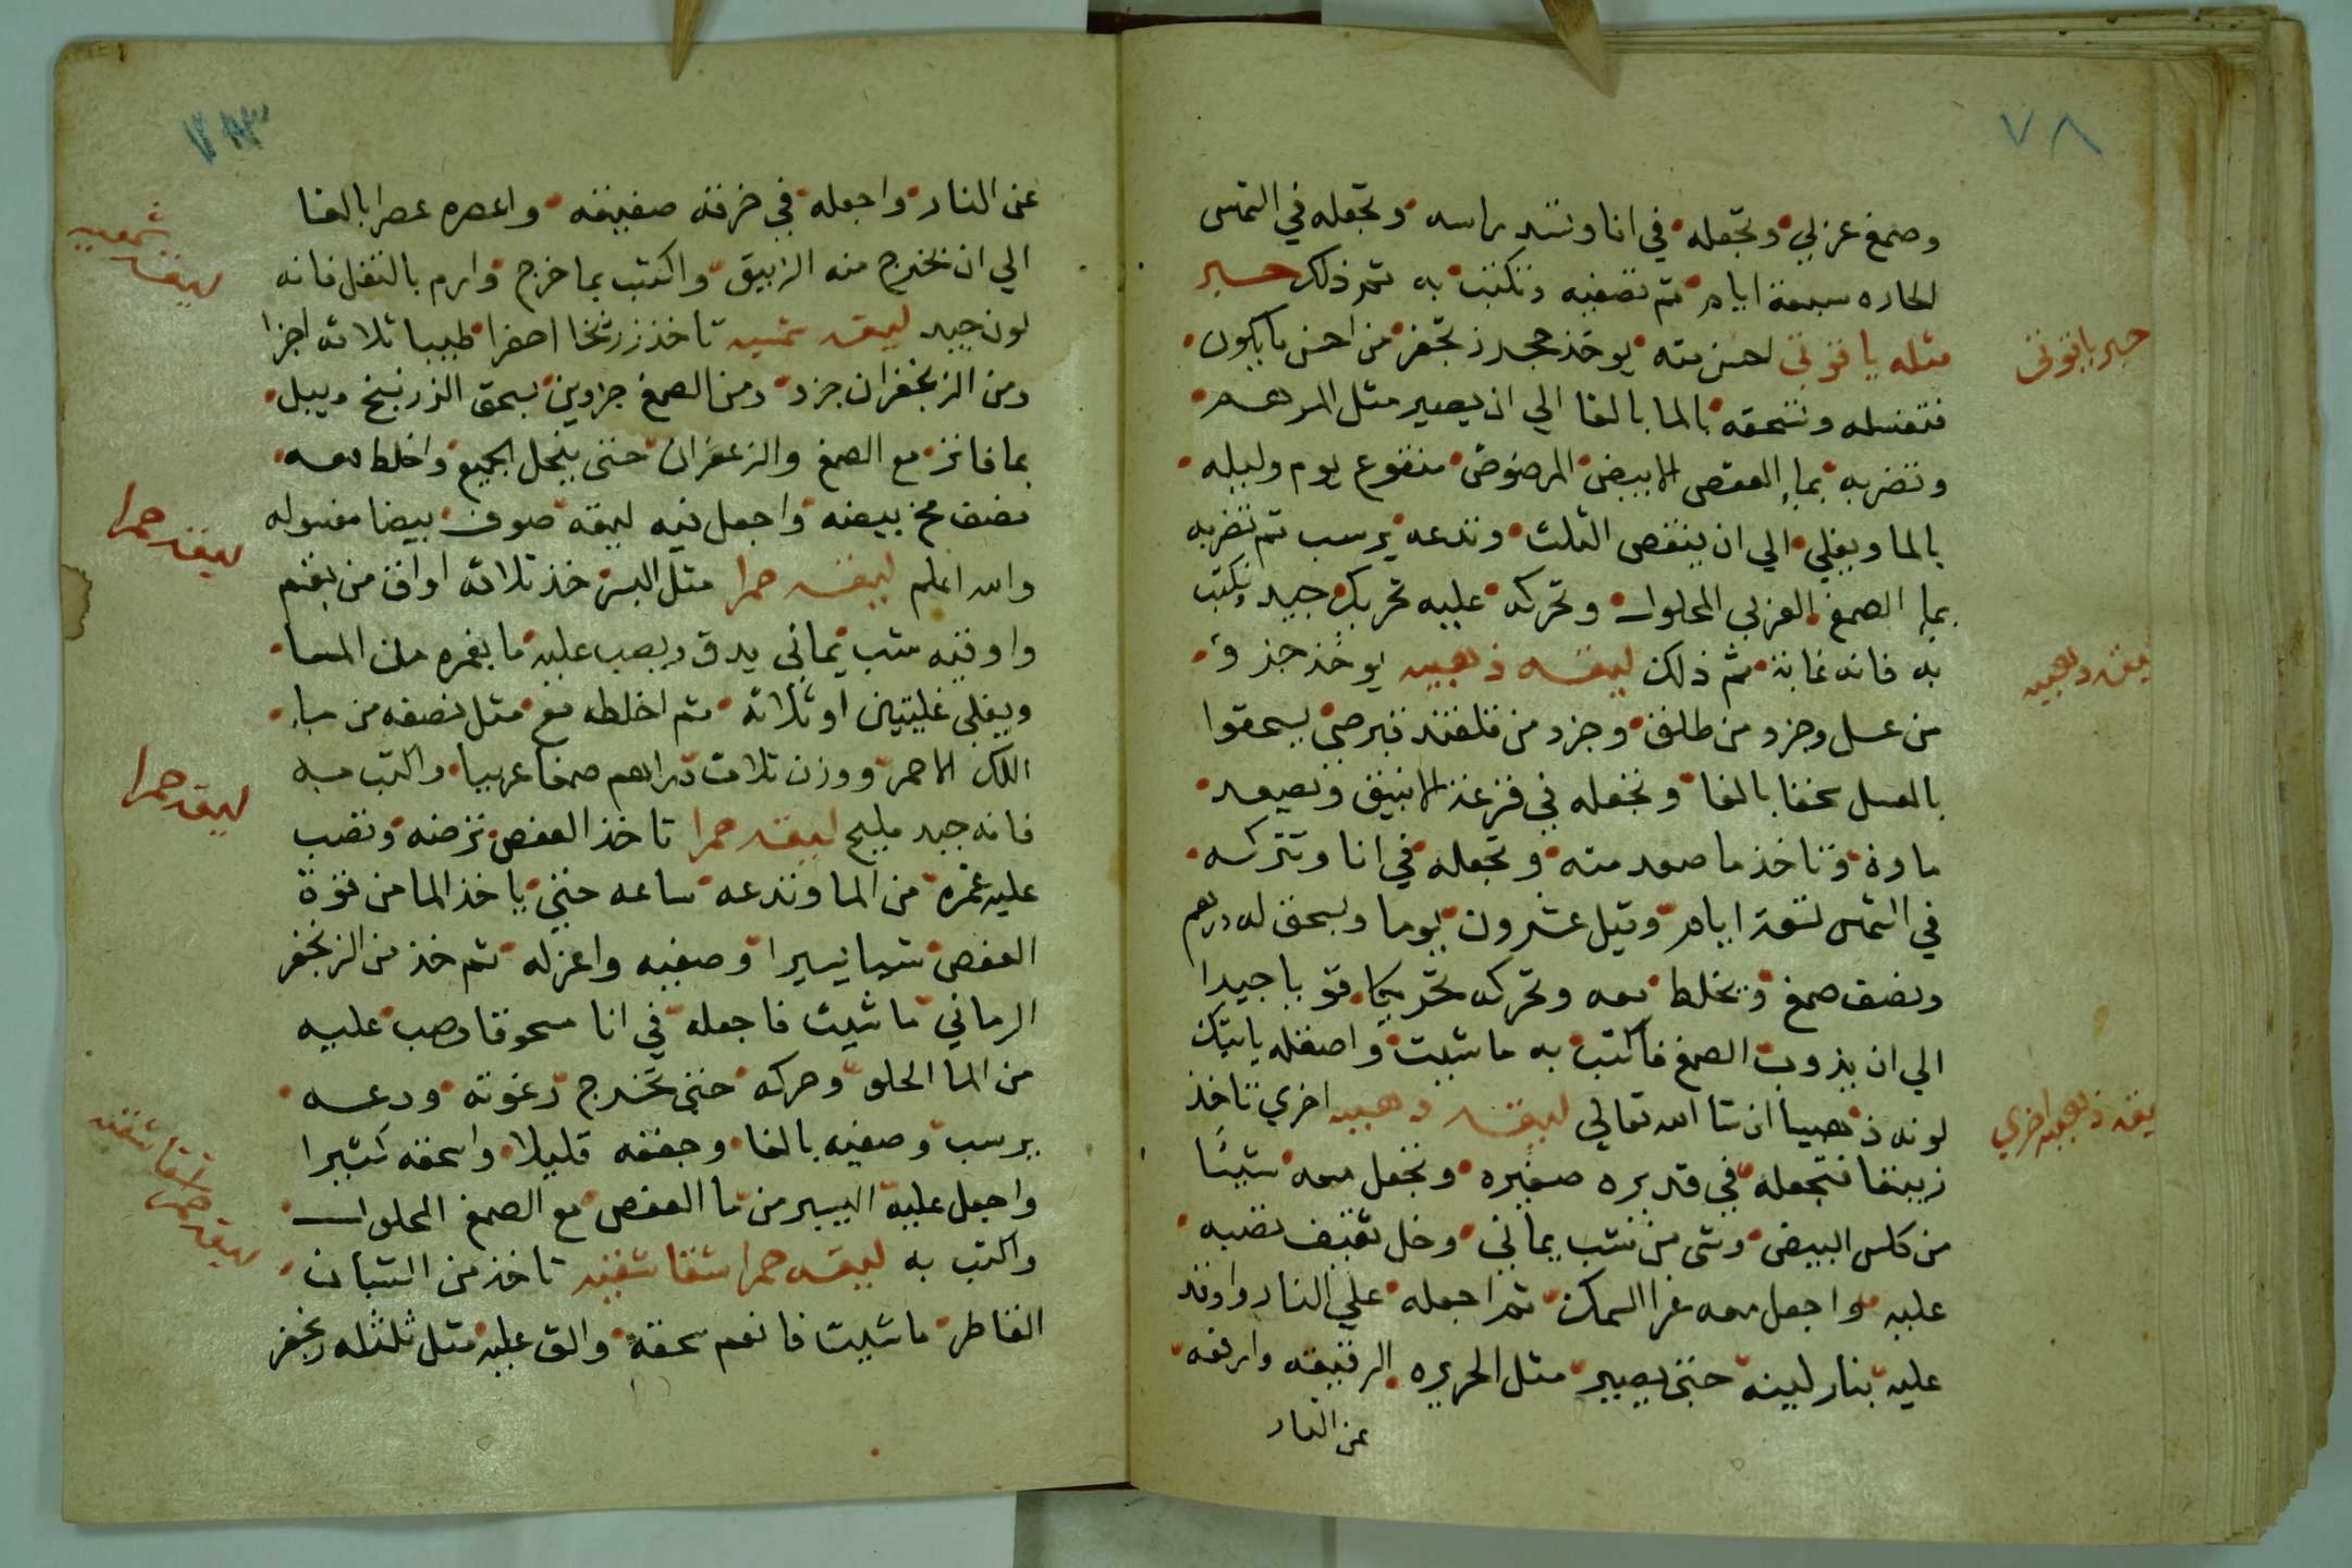 ٧٨
وصمغ عربي وتجعله في انا وتشد راسه وتجعله في الشمس
الحاره سبعة ايام ثم تصفيه وتكتب به تم ذلك حبر
مثله ياقوتي احسن منه يوخذ حجر زنجفر من احسن ما يكون
فتغسله وتسحقه بالما بالغا الي ان يصير مثل المرهم
وتضربه بماء العفص الابيض المرضوض منقوع يوم وليله
بالما ويغلي الي ان ينقص الثلث وتدعه يرسب ثم تضربه
بماء الصمغ العربي المحلول وتحركه عليه تحريك جيد وتكتب
به فانه غاية تم ذلك ليقه ذهبيه يوخذ جزؤ
من عسل وجزو من طلق وجزو من قلقند قبرصي يسحقوا
بالعسل سحقا بالغا وتجعله في قرعة الانبيق وتصعد
ماوه وتاخذ ما صعد منه وتجعله في انا وتتركه
في الشمس تسعة ايام وقيل عشرون يوما ويسحق له درهم
ونصف صمغ ويخلط معه وتحركه تحريكا قويا جيدا
الي ان يذوب الصمغ فاكتب به ما شيت واصقله ياتيك
لونه ذهبيا ان شا الله تعالي ليقه ذهبيه اخري تاخذ
زيبقا فتجعله في قديره صغيره وتجعل معه شيئا
من كلس البيض وشي من شب يماني وخل ثقيف تصبه
عليه واجعل معه غرا السمك ثم اجعله علي النار واوقد
عليه بنار لينه حتي يصير مثل الحريره الرقيقه وارفعه
عن النار
حبر ياقوتي
ليقه ذهبيه
ليقه ذهبيه اخري
عن النار واجعله في خرقه صفيقه واعصره عصرا بالغا
الي ان يخرج منه الزيبق واكتب بما خرج وارم بالثفل فانه
لون جيد ليقه شمسيه تاخذ زرنيخا اصفرا طيبا ثلاثه اجزا
ومن الزعفران جزو ومن الصمغ جزوين يسحق الزرنيخ ويبل
بما فاتر مع الصمغ والزعفران حتي ينحل الجميع واخلط معه
نصف مخ بيضه واجعل فيه ليقة صوف بيضا مغسوله
والله اعلم ليقه حمرا مثل البسر خذ ثلاثه اواق من بقم
واوقيه شب يماني يدق ويصب عليه ما يغمره من الما
ويغلي غليتين او ثلاثه ثم اخلطه مع مثل نصفه من ماء
اللك الاحمر ووزن ثلاث دراهم صمغا عربيا واكتب به
فانه جيد مليح ليقه حمرا تاخذ العفص ترضه وتصب
عليه غمره من الما وتدعه ساعه حتي ياخذ الما من قوة
العفص شيا يسيرا وصفيه واعزله ثم خذ من الزنجفر
الرماني ما شيت فاجعله في انا مسحوقا وصب عليه
من الما الحلو وحركه حتي تخرج رغوته ودعه
يرسب وصفيه بالغا وجففه قليلا واسحقه كثيرا
واجعل عليه اليسير من ما العفص مع الصمغ المحلول
واكتب به ليقه حمرا شقايقيه تاخذ من الشبان
القاطر ما شيت فانعم سحقه والق عليه مثل ثلثله زنجفر
ليقه حمرا
ليقه حمرا